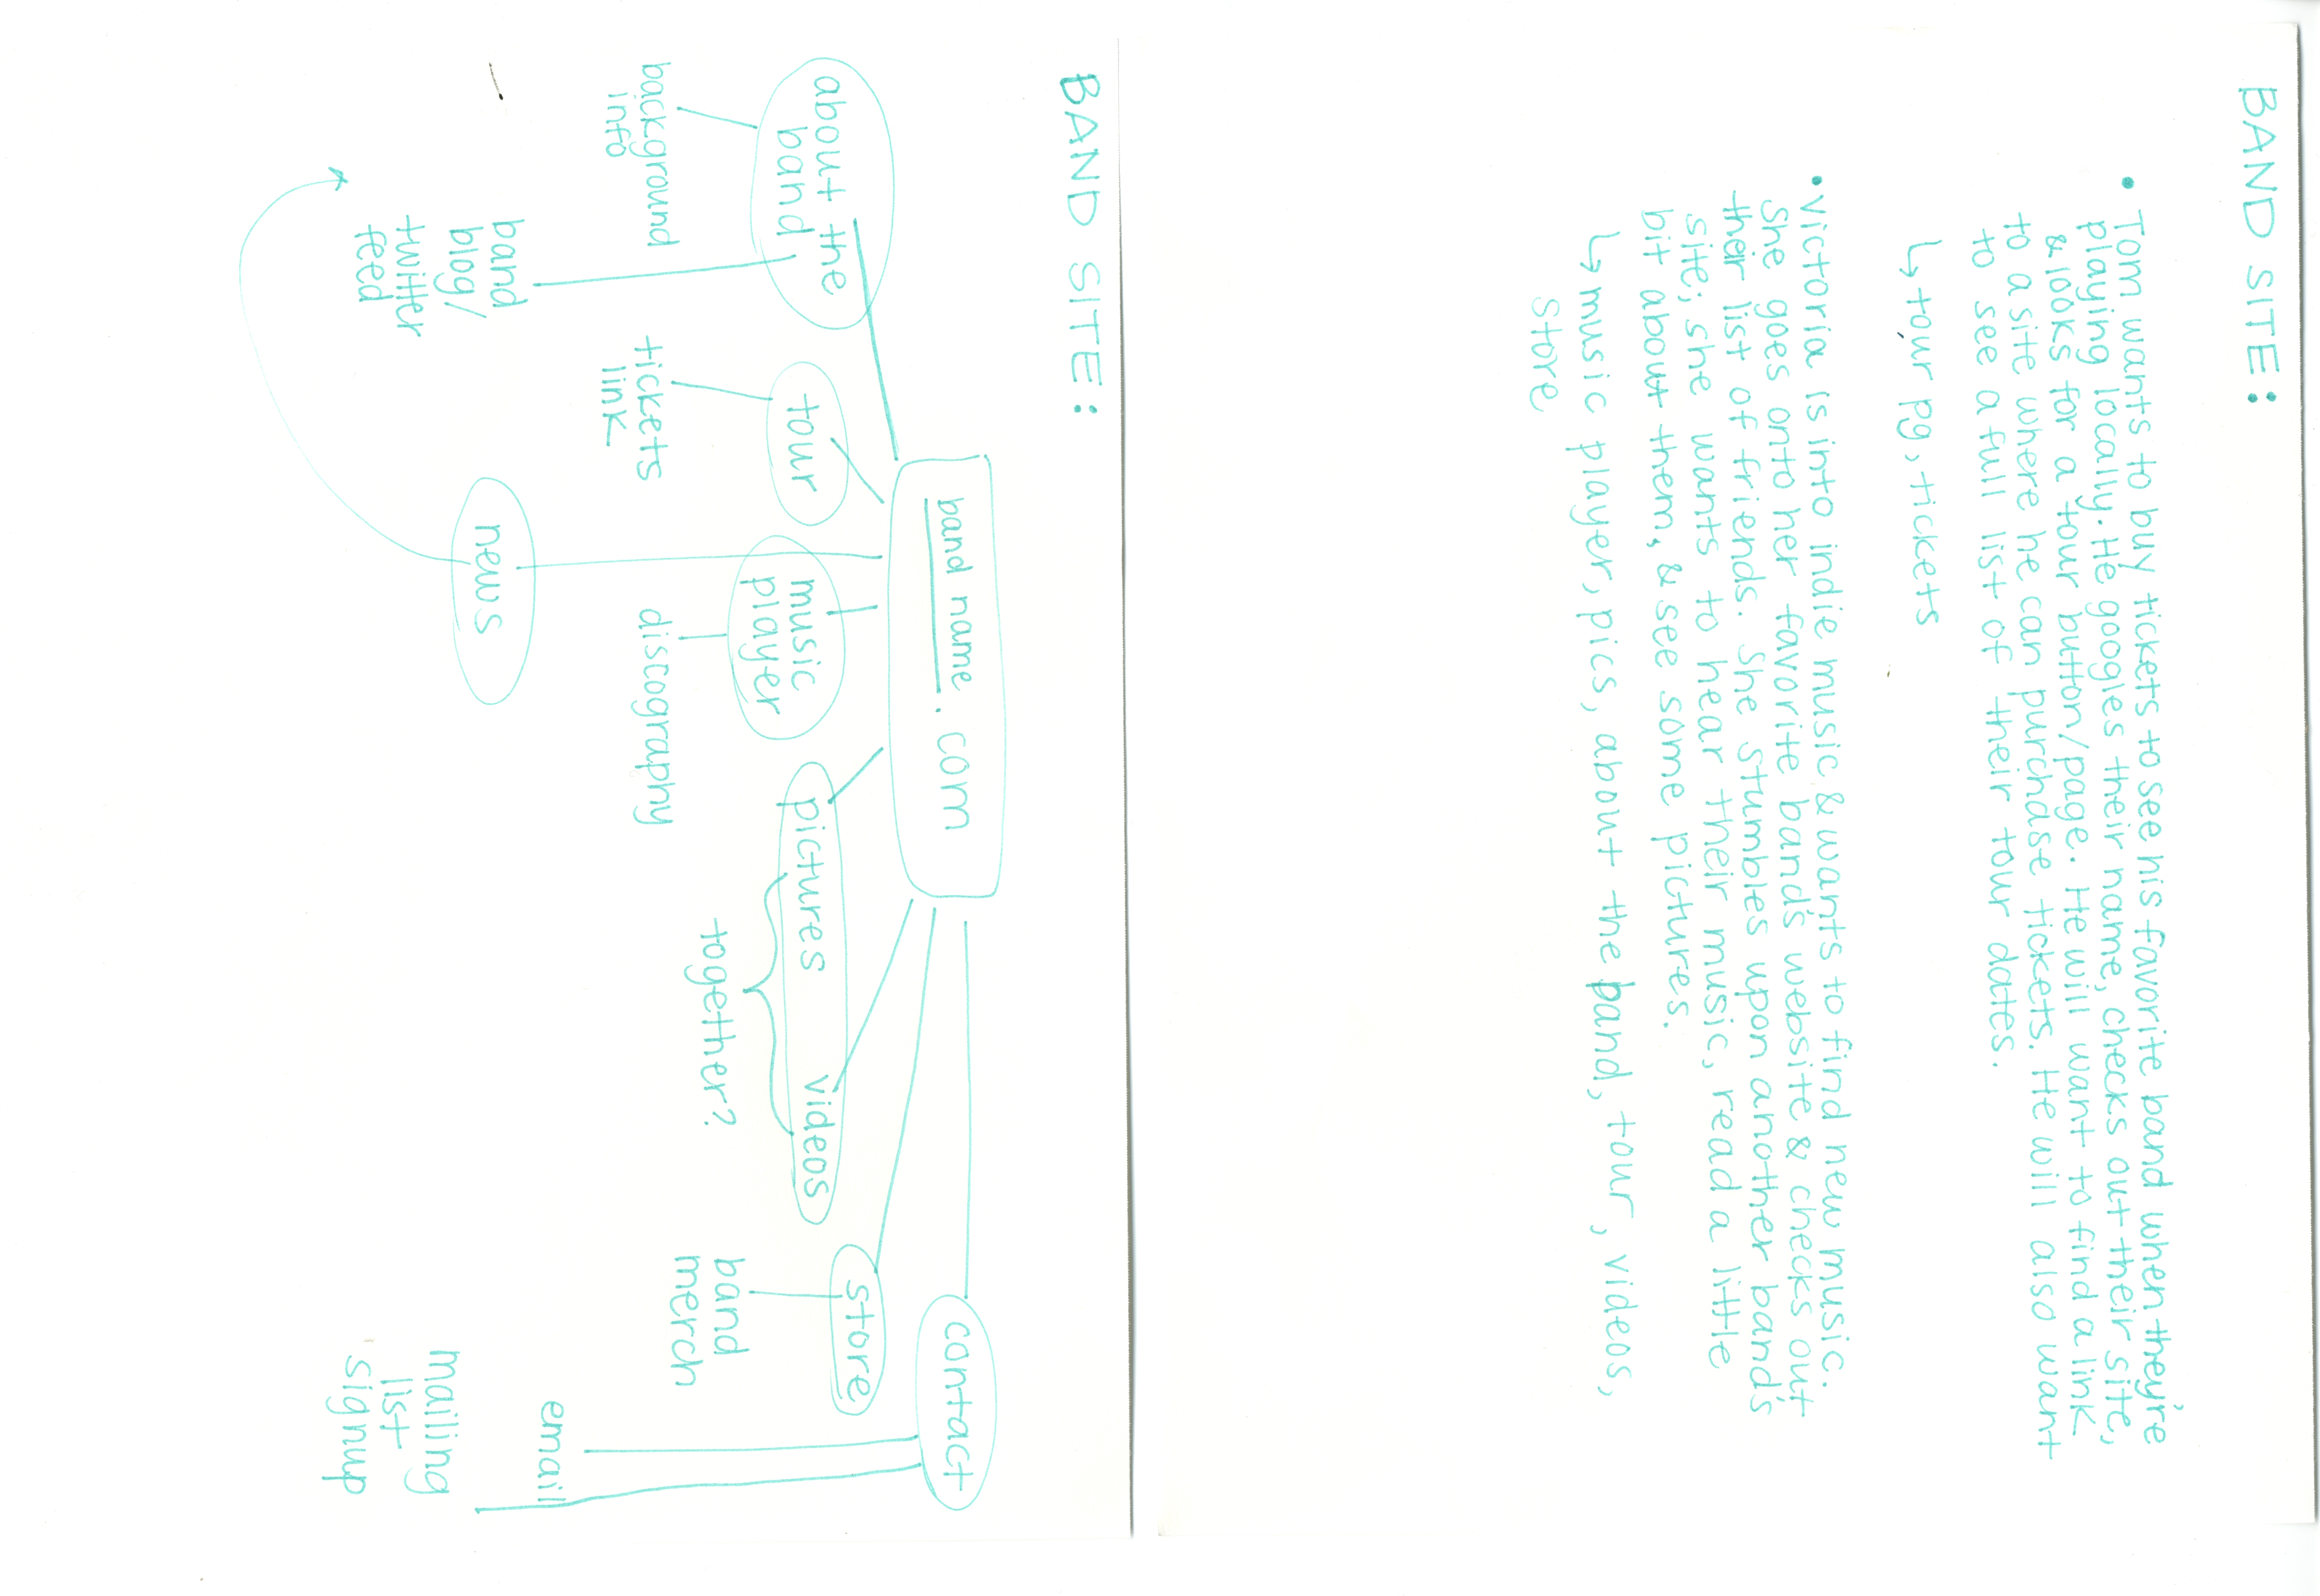 BAND SITE:
• Tom wants to buy tickets to see his favorite band when they're
playing locally. He googles their name, checks out their site,
& looks for a tour button/page. He will want to find a link
to a site where he can purchase tickets. He will also want
to see a full list of their tour dates.
↳ tour pg, tickets
• Victoria is into indie music & wants to find new music.
She goes onto her favorite band's website & checks out
their list of friends. She stumbles upon another band's
site; she wants to hear their music, read a little
bit about them, & see some pictures.
↳ music player, pics, about the band, tour, videos,
store
BAND SITE:
band name.com
contact
about the
band
tour
music
player
pictures
videos
store
together?
background
info
tickets
link
discography
band
merch
news
band
blog/
twitter
feed
email
mailing
list
signup